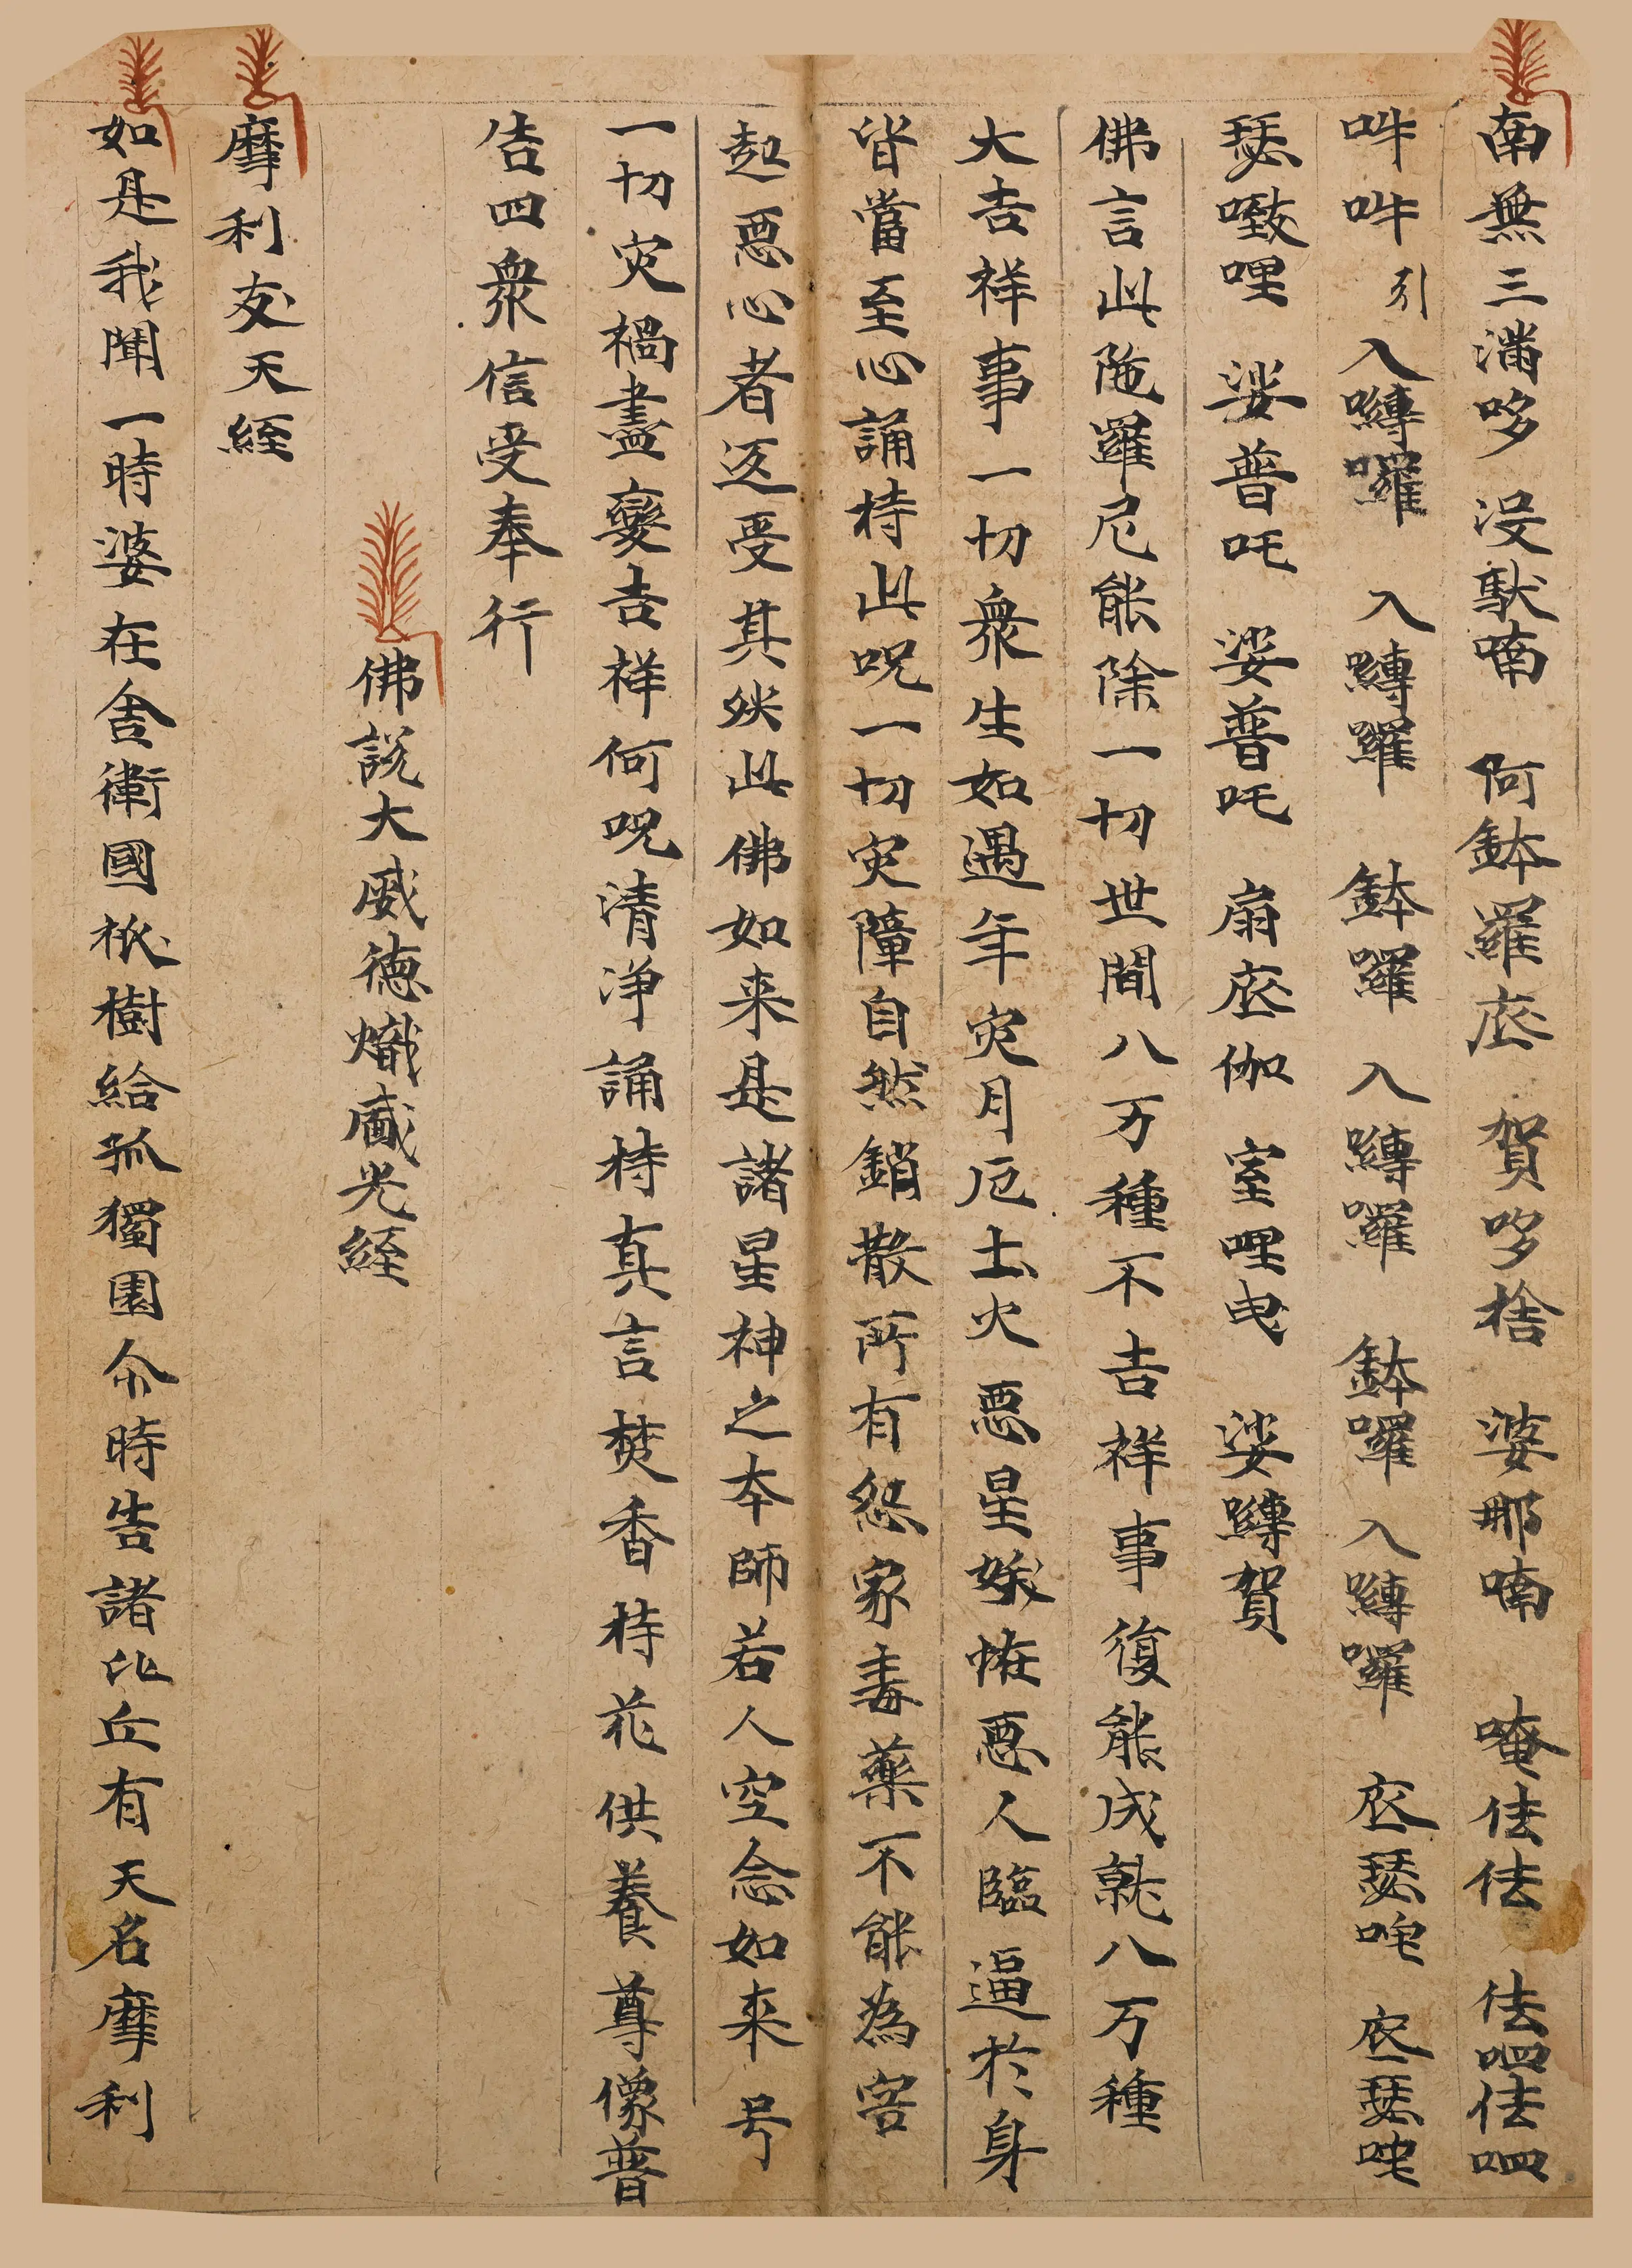 南無三滿哆 没馱喃 阿鉢羅底 賀哆捨 婆那喃 唵佉佉 佉呬佉呬
吽吽引 入嚩囉 入嚩囉 鉢囉 入嚩囉 鉢囉入嚩囉 底瑟咤 底瑟咤
瑟致哩 娑普吒 娑普吒 扇底伽 室哩曳 娑嚩賀
佛言此陁羅尼能除一切世間八万種不吉祥事復能成就八万種
大吉祥事一切衆生如遇年灾月厄土火惡星娭恠惡人臨逼於身
皆當至心誦持此呪一切灾障自然銷散所有怨家毒藥不能為害
起惡心者返受其殃此佛如来是諸星神之本師若人空念如来号
一切灾禍盡變吉祥何呪清净誦持真言焚香持花供養尊像普
告四衆信受奉行
佛說大威德熾盛光經
摩利支天經
如是我聞一時婆在舍衛國祇樹給孤獨園尒時告諸比丘有天名摩利